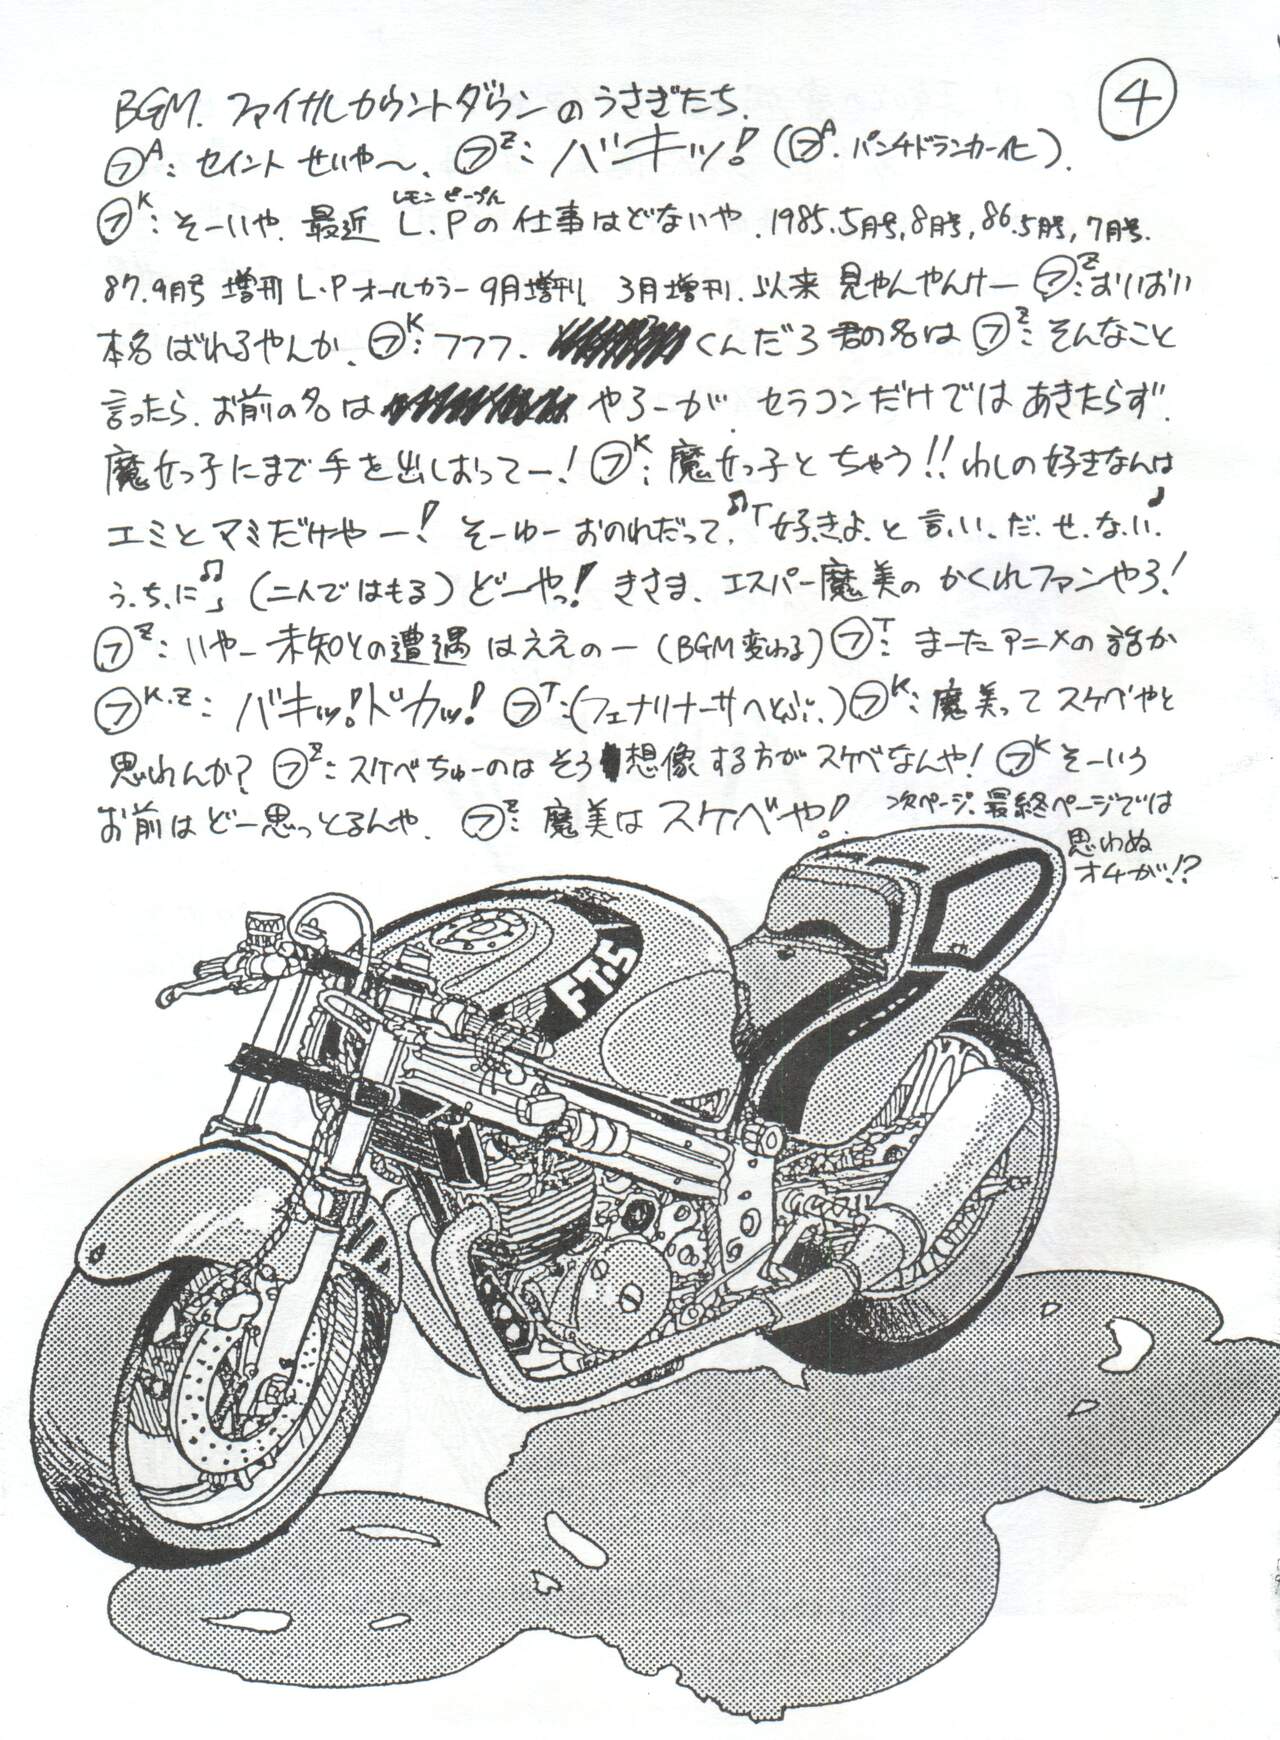 ④
BGM. ファイナルカウントダウンのうさぎたち.
㋫A: セイント せいや〜、㋫Z: バキッ! (㋫A. パンチドランカー化).
㋫K: そーいや. 最近 L.Pの 仕事はどないや. 1985. 5月号, 8月号, 86. 5月号, 7月号.
レモン ピープル
87. 9月号 増刊 L・P オールカラー 9月増刊、3月増刊. 以来 見やんやんけー ㋫Z: おいおい
本名 ばれるやんか、㋫K: フフフ. くんだろ 君の名は ㋫Z: そんなこと
言ったら. お前の名は やろーが. セラコンだけでは あきたらず.
魔女っ子にまで 手を出しおってー! ㋫K: 魔女っ子と ちゃう!! わしの好きなんは
エミとマミだけやー! そーゆー おのれだって, ♫「好.き.よ.と 言.い.だ.せ.な.い.♪
う.ち.に♫」 (二人ではもる) どーやっ! きさま、エスパー魔美の かくれファンやろ!
㋫Z: いやー 未知との遭遇 はええのー (BGM変わる) ㋫T: まーた アニメの 話か
㋫K.Z: バキッ! ドカッ! ㋫T: (フェナリナーサへとぶ.) ㋫K: 魔美って スケベやと
思われんか? ㋫Z: スケベちゅーのは そう 想像 する方が スケベなんや! ㋫K そーいう
お前は どー思っとるんや. ㋫Z: 魔美は スケベや!
次ページ. 最終ページでは
思わぬ
オチが!?
FT.S